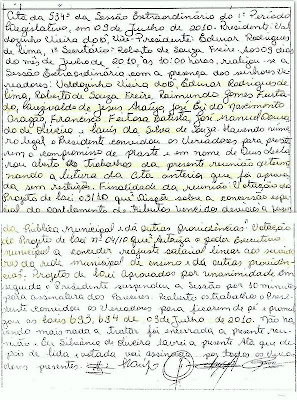 Ata da 534ª da Sessão Extraordinário do 1º Período
Legislativo, em 09 de Junho de 2010. Presidente: Val
Vieira dos, Vice-Presidente: Edimar Rodrigues
de Lima, 1º Secretário: Roberto de Souza Freire, Aos 09 dias
do mês de Junho de 2010, às 10:00 horas, realizou-se a
Sessão Extraordinário com a presença dos senhores Ve
readores: Vieira dos, Edimar Rodrigues
de Lima, Roberto de Souza Freire, Raimundo
de Jesus Araújo, José do Nascimento
Aragão, Francisco Feitosa Batista, José Manuel
de Oliveira e Luis da Silva de Souza. Havendo núme
ro legal o Presidente convidou os Vereadores para presta
rem o compromisso de praxe e em nome de Deus decla
rou aberto os trabalhos da presente reunião determi
nando a leitura da Ata anterior que foi aprova
da sem restrição. Finalidade da reunião: Votação do
Projeto de Lei 03/10 que dispõe sobre a concessão espe
cial do parcelamento de tributos vencidos
da Pública Municipal e dá outras providências; Votação
do Projeto de Lei nº 04/10 que autoriza o poder Executivo
municipal a conceder reajuste salarial linear aos
da rede municipal de ensino e dá outras providên
cias. Projetos de Lei aprovados por unanimidade em
seguida o Presidente suspendeu a Sessão por 10 minutos
para assinatura dos Pareceres. Reaberto os trabalhos o Presi
dente convidou os Vereadores para ficarem de pé e promul
gou as Leis 633, 634 de 09 de Junho de 2010. Não ha
vendo mais nada a tratar foi encerrada a presente reu
nião. Eu Silvânia de Oliveira lavrei a presente Ata que de
pois de lida e votada vai assinada por todos os Verea
dores presentes.